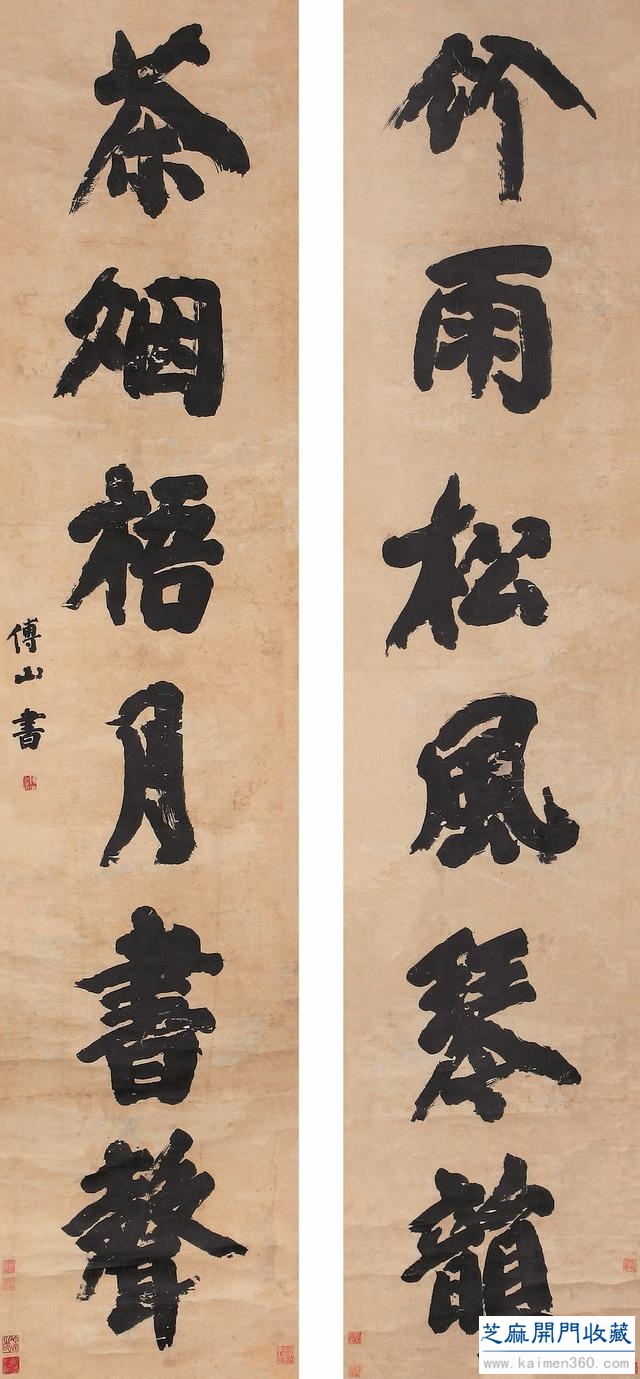 竹雨松風琴韻
茶烟梧月書聲
傅山書
芝麻開門收藏
www.kaimen360.com